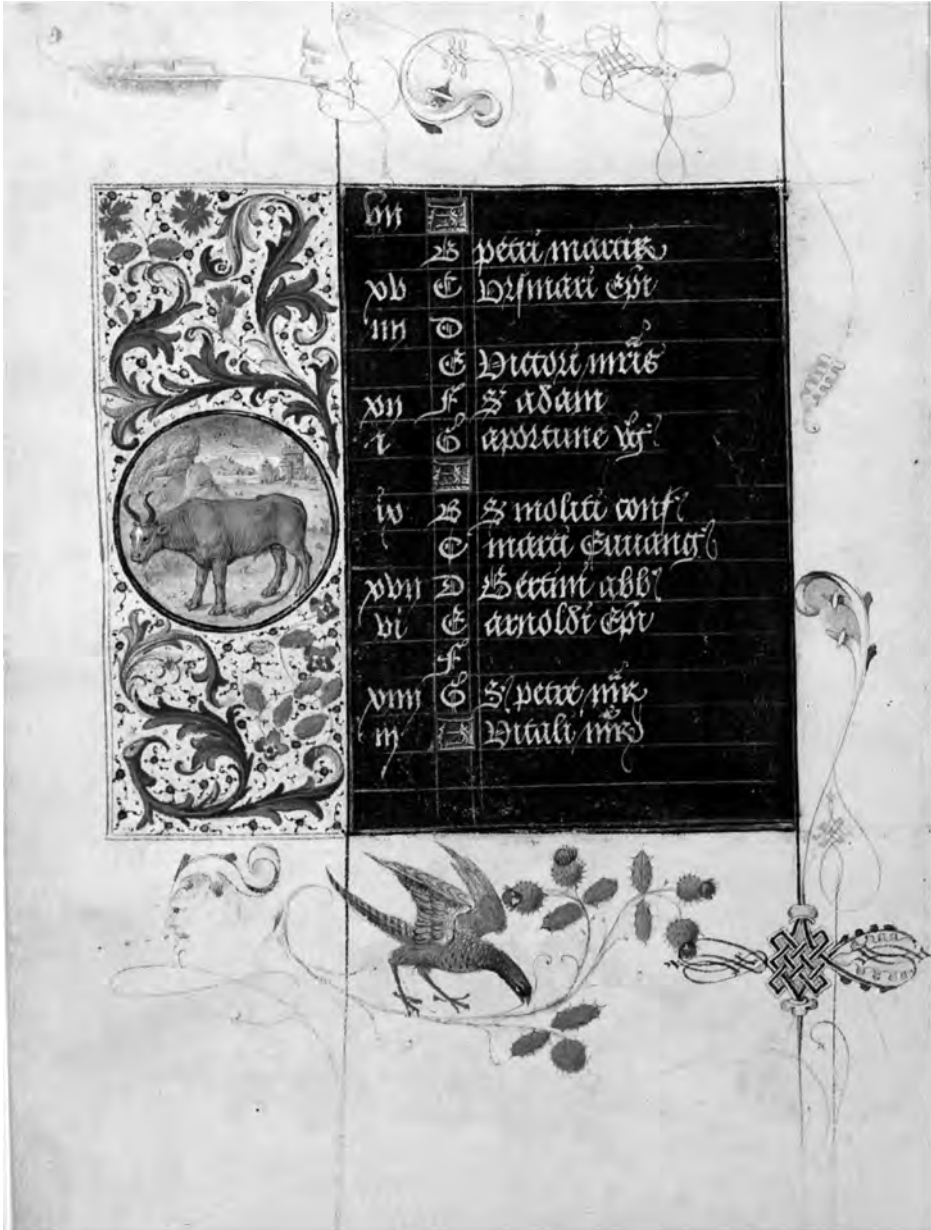 vii A
B petri martir
xv C Vrsmari Epi
iiii D
E Victori mris
xii F S adam
i G aportune vg
A
ix B S moliti conf
C marci Euuang
xvii D Bertini abb
vi E arnoldi Epi
F
xiiii G S petri mr
iii A Vitali mr